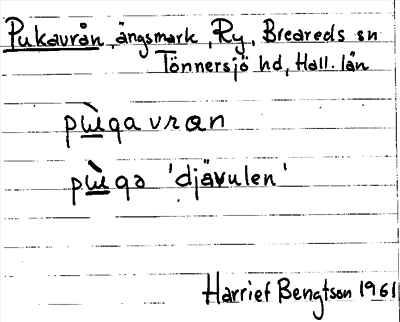 Pukavrån, ängsmark, Ry, Breareds sn
Tönnersjö hd, Hall. län
pɯ̀qavran
pɯ̀qə 'djävulen'
Harrief Bengtson 1961